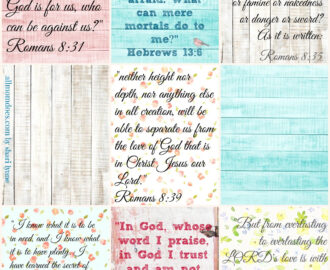 God is for us, who
can be against us?"
Romans 8:31
afraid. What
can mere
mortals do to
me?"
Hebrews 13:6
or famine or nakedness
or danger or sword?
As it is written:
Romans 8:35
allmomdoes.com by sheri lynne
"neither height nor
depth, nor anything else
in all creation, will be
able to separate us from
the love of God that is
in Christ Jesus our
Lord."
Romans 8:39
I know what it is to be
in need, and I know what
it is to have plenty. I
have learned the secret of
"In God, whose
word I praise,
in God I trust
and am not
"But from everlasting to
everlasting the
LORD's love is with